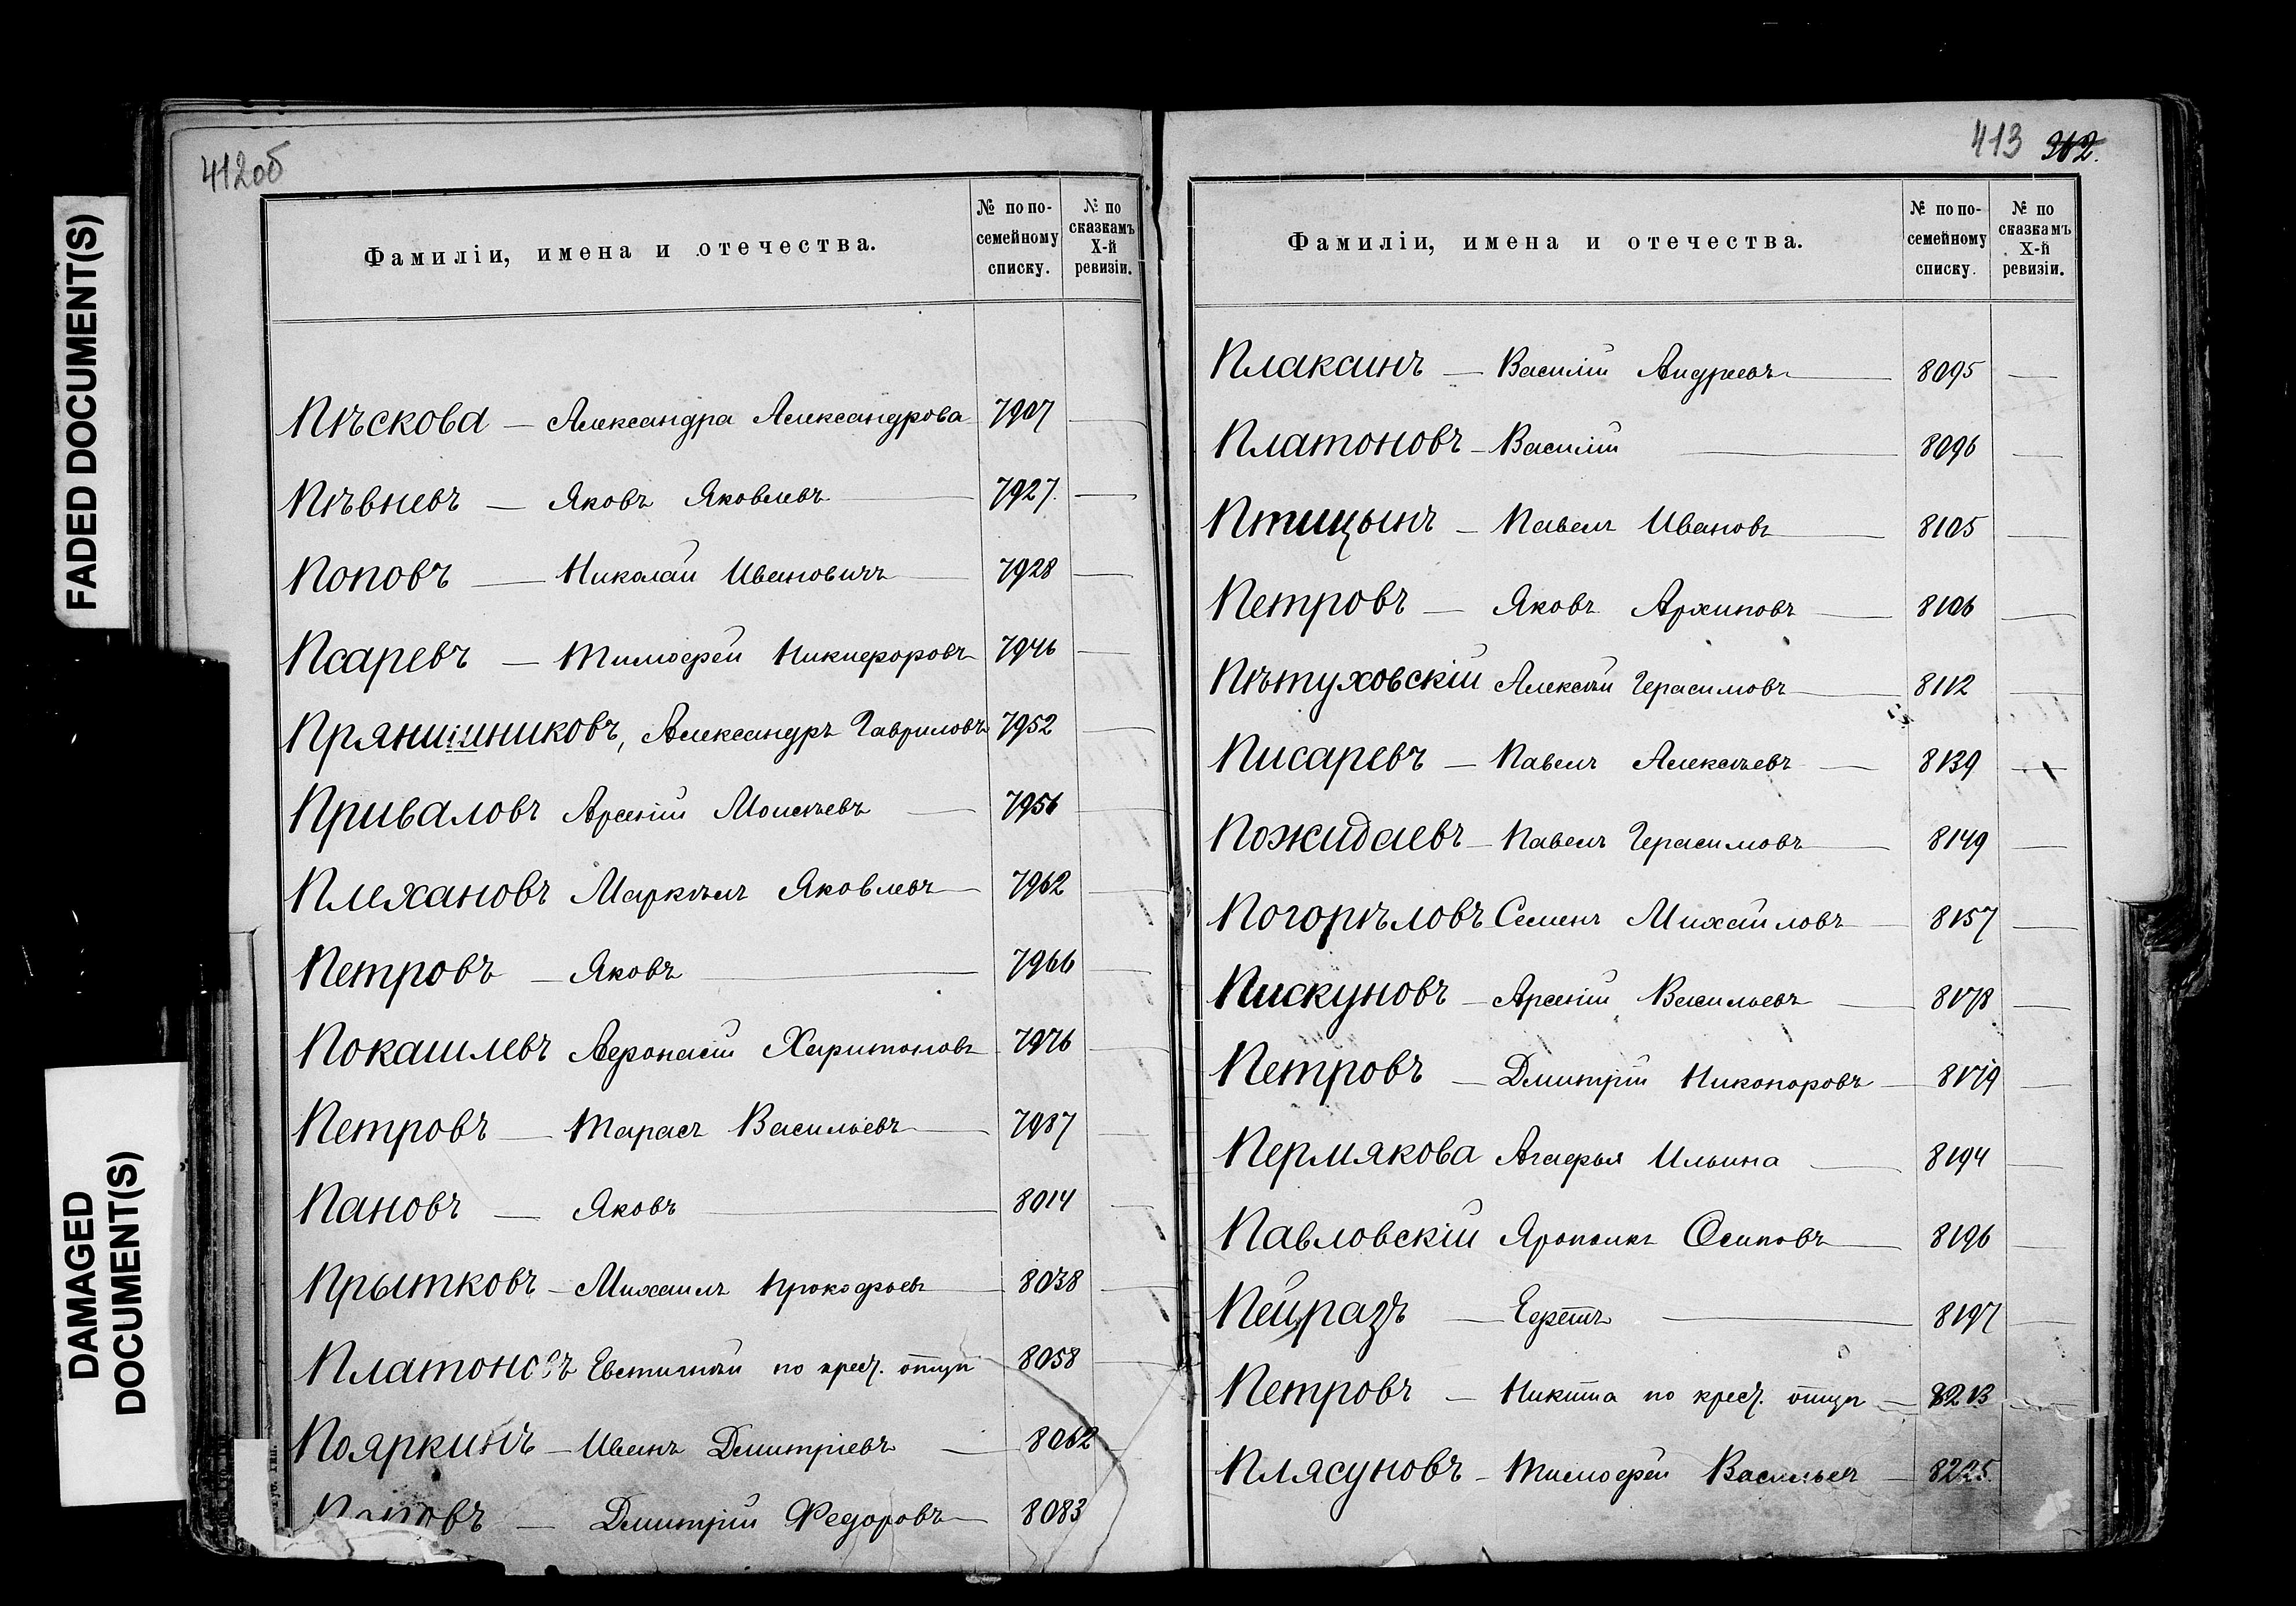 FADED DOCUMENT(S)
DAMAGED
DOCUMENT(S)
412об
Фамиліи, имена и отечества.
№ по по-
семейному
списку.
№ по
сказкамъ
X-й
ревизіи.
Пѣскова — Александра Александрова 7907 —
Пѣвневъ — Яковъ Яковлевъ — 7927. —
Поповъ — Николай Ивановичъ — 7928 —
Псаревъ — Тимофей Никифоровъ 7946 —
Прянишниковъ, Александръ Гавриловъ 7952 —
Приваловъ Арсеній Моисѣевъ — 7956 —
Плехановъ Маркѣлъ Яковлевъ — 7962 —
Петровъ — Яковъ — 7966 —
Покашлевъ Афонасій Харитоновъ 7976 —
Петровъ — Тарасъ Васильевъ — 7987 —
Пановъ — Яковъ — 8014 —
Прытковъ — Михаилъ Прокофьевъ — 8038 —
Платоновъ Евстигнѣй по крест. отцу 8058 —
Пояркинъ — Иванъ Дмитріевъ — 8062 —
Дмитрій Федоровъ — 8083
413 312.
Фамиліи, имена и отечества.
№ по по-
семейному
списку.
№ по
сказкамъ
X-й
ревизіи.
Плаксинъ — Василій Андреевъ — 8095 —
Платоновъ — Василій — 8096 —
Птицынъ — Павелъ Ивановъ — 8105 —
Петровъ — Яковъ Архиповъ — 8106 —
Пѣтуховскій Алексѣй Герасимовъ — 8112 —
Писаревъ — Павелъ Алексѣевъ — 8139 —
Пожидаевъ — Павелъ Герасимовъ — 8149 —
Погорѣловъ Семенъ Михайловъ — 8157 —
Пискуновъ — Арсеній Васильевъ — 8178 —
Петровъ — Дмитрій Никоноровъ — 8179 —
Пермякова Агафья Ильина — 8194 —
Павловскій Ярополкъ Осиповъ — 8196 —
Пейразъ — — 8197 —
Петровъ — Никита по крест. отцу — 8213 —
Плясуновъ — Тимофей Васильевъ — 8225.